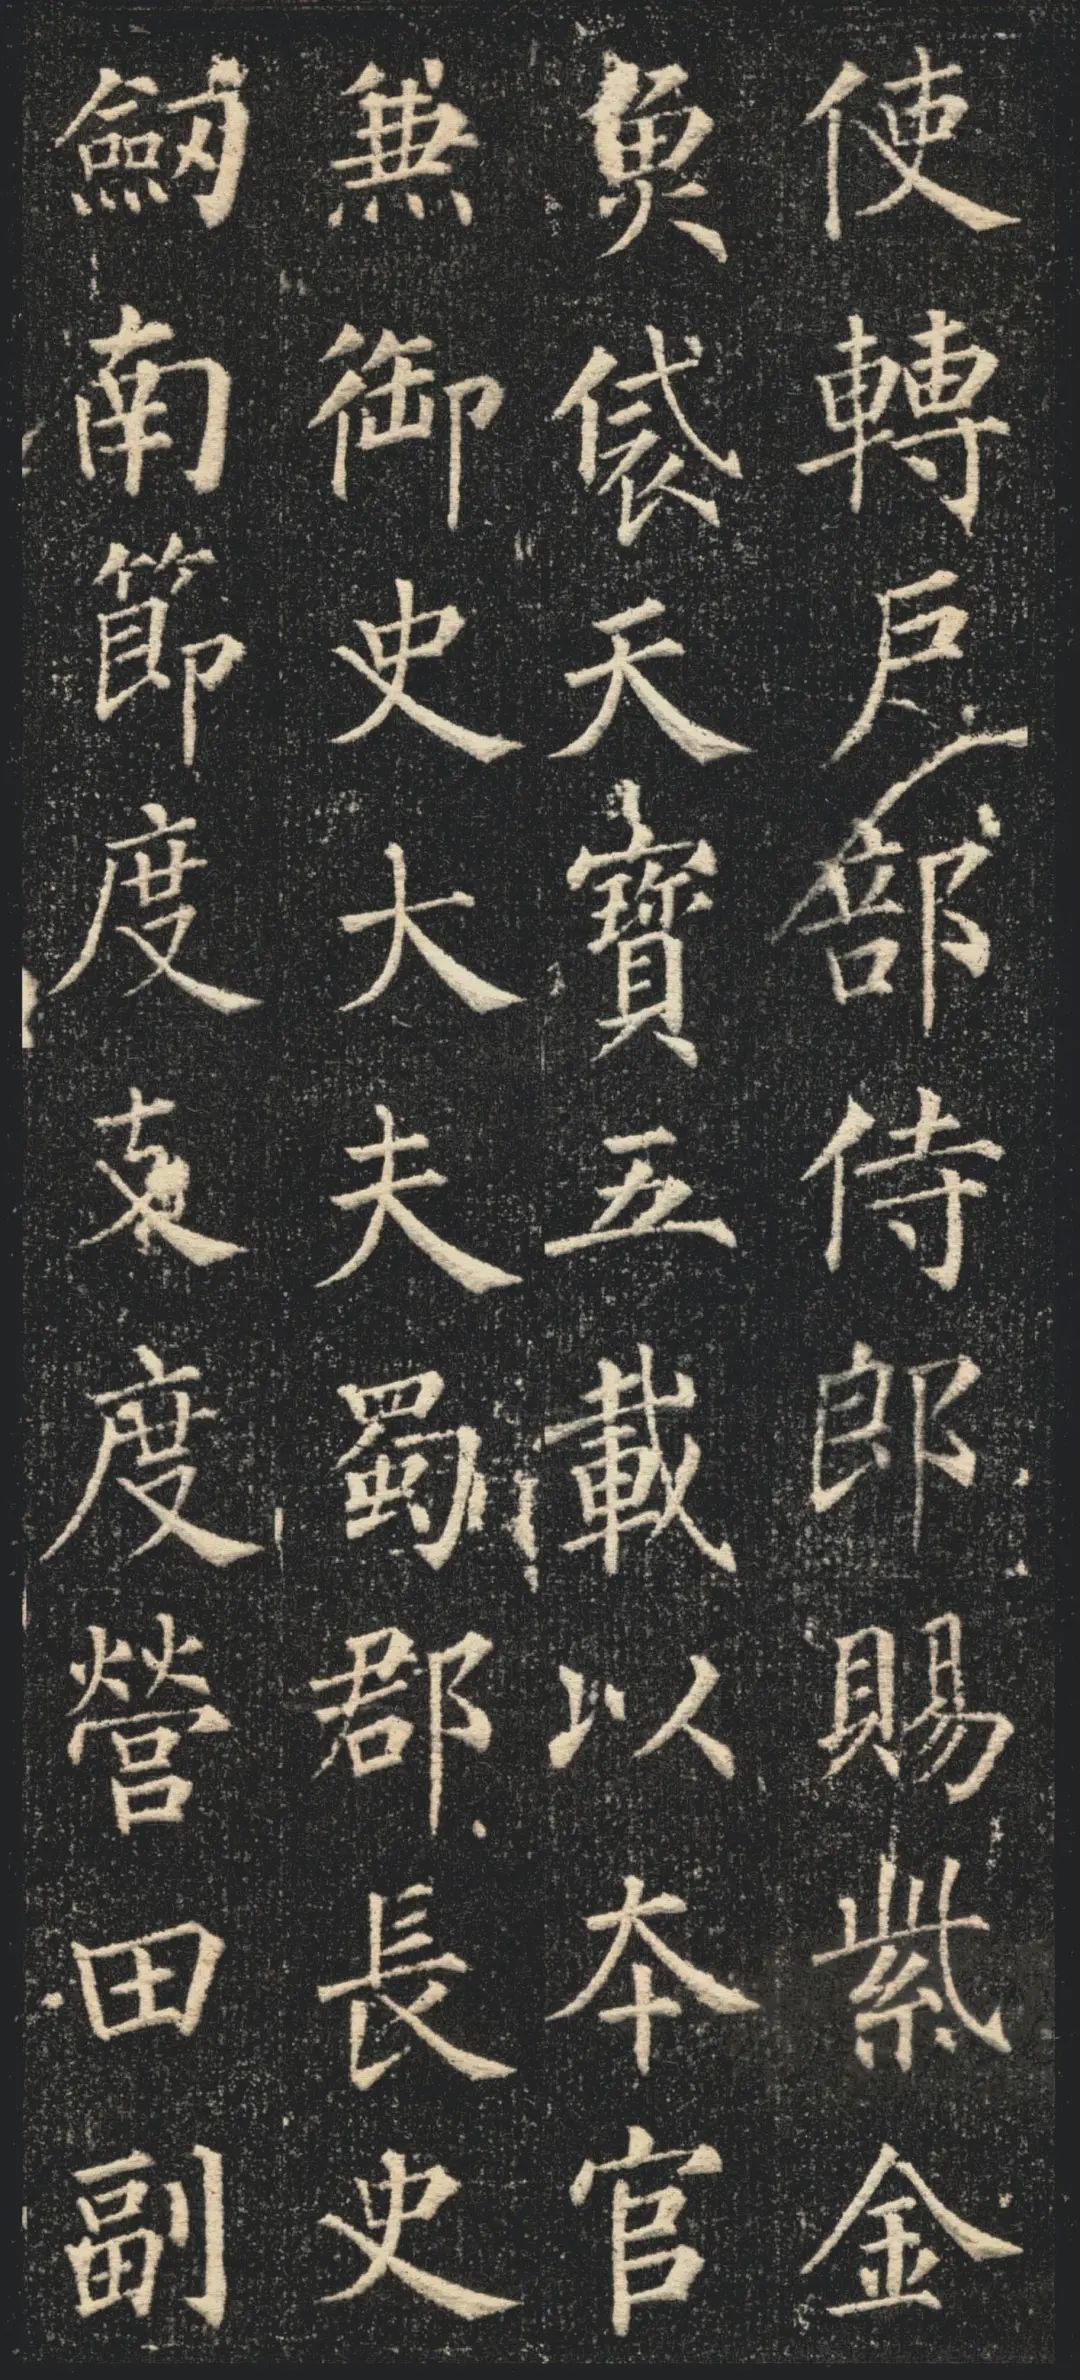 使轉戶部侍郎賜紫金
魚袋天寶五載以本官
兼御史大夫蜀郡長史
劒南節度支度營田副